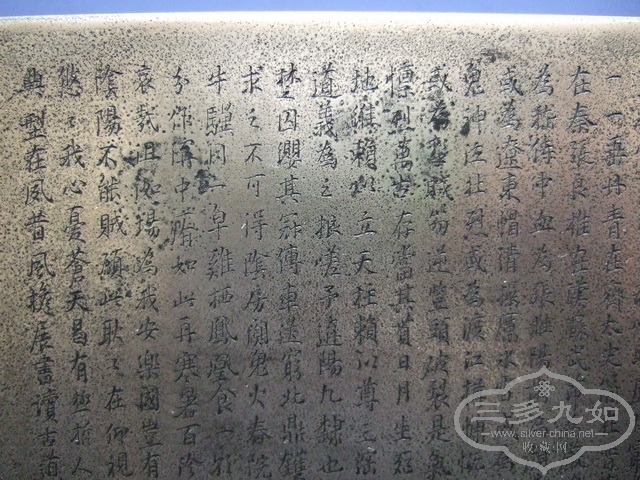 一一垂丹青在齊太史
在秦張良椎在漢蘇武
為嵇侍中血為張睢陽
或為遼東帽清操厲冰
鬼神泣壯烈或為渡江楫慷慨
或為擊賊笏逆豎頭破裂是氣
凜烈萬古存當其貫日月生死
地維賴以立天柱賴以尊三綱
道義為之根嗟予遘陽九隸也
楚囚纓其冠傳車送窮北鼎鑊
求之不可得陰房闃鬼火春院
牛驥同一皁雞棲鳳凰食一朝
分作溝中瘠如此再寒暑百沴
哀哉沮洳場為我安樂國豈有
陰陽不能賊顧此耿々在仰視
悠々我心憂蒼天曷有極哲人
典型在夙昔風檐展書讀古道
三多九如
www.silver-china.net
收藏网